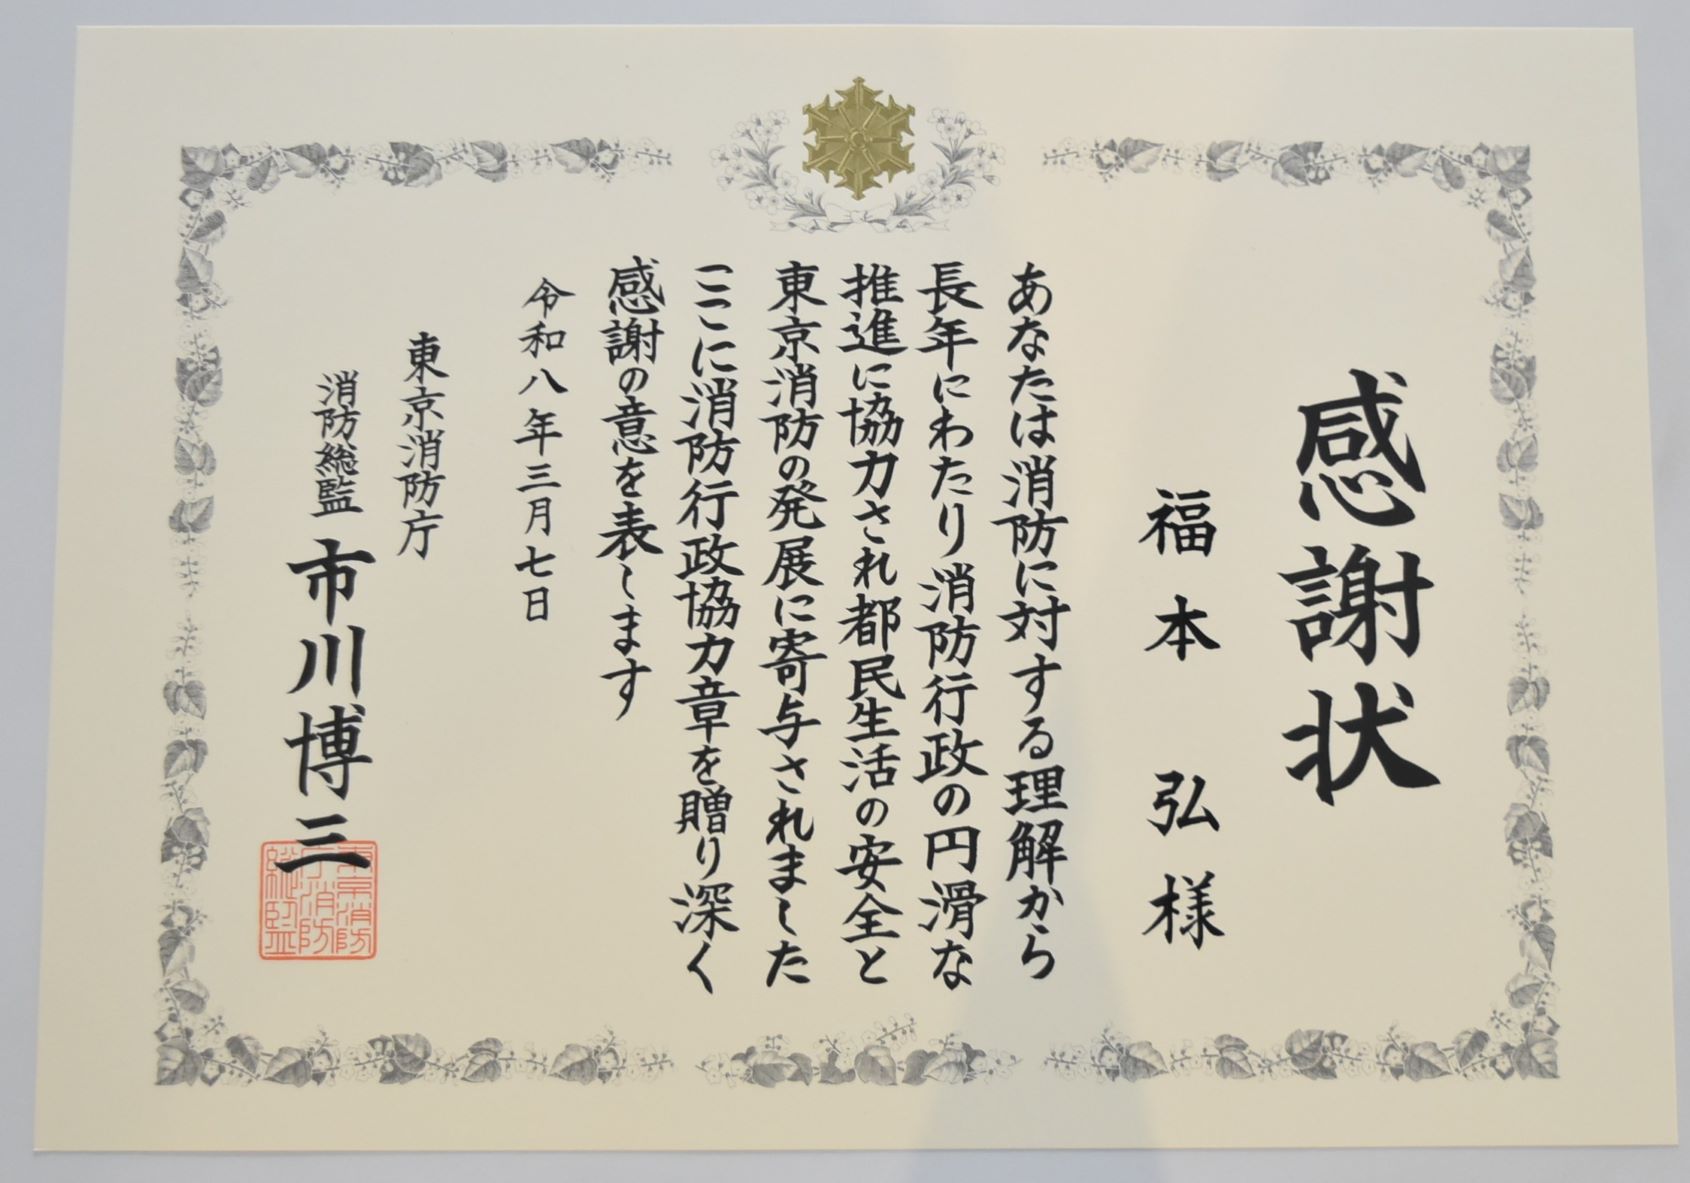 感謝状
福本 弘 様
あなたは消防に対する理解から
長年にわたり消防行政の円滑な
推進に協力され都民生活の安全と
東京消防の発展に寄与されました
ここに消防行政協力章を贈り深く
感謝の意を表します
令和八年三月七日
東京消防庁
消防総監 市川博三
東京消防
庁消防
総監